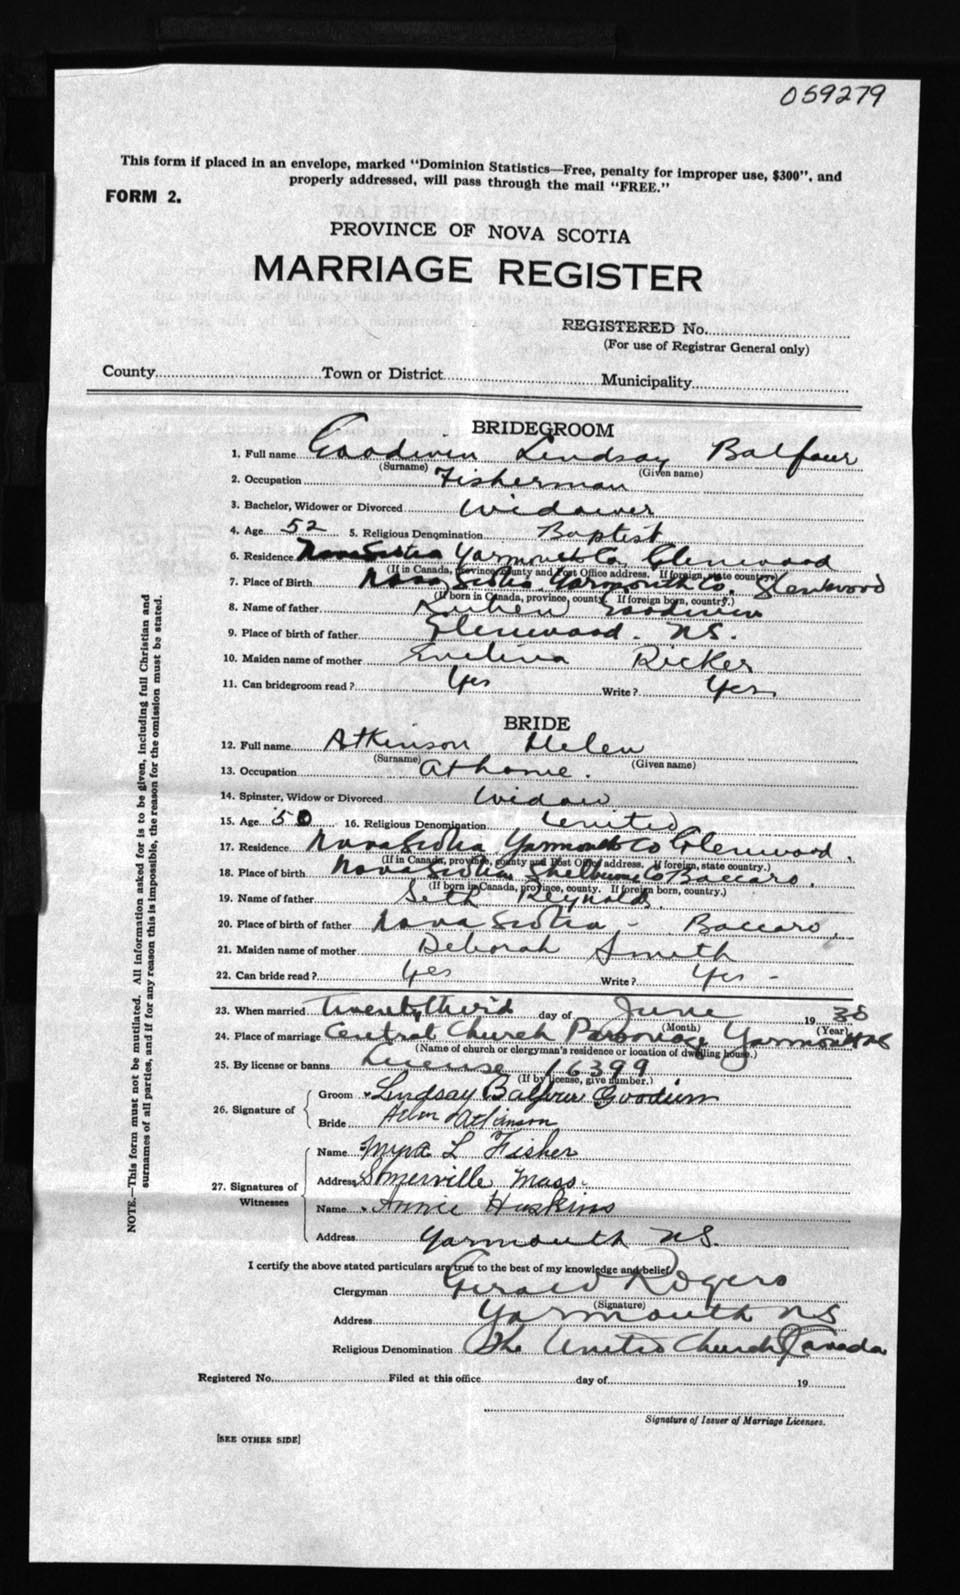 059279
This form if placed in an envelope, marked "Dominion Statistics—Free, penalty for improper use, $300", and
properly addressed, will pass through the mail "FREE."
FORM 2.
PROVINCE OF NOVA SCOTIA
MARRIAGE REGISTER
REGISTERED No.
(For use of Registrar General only)
County Town or District Municipality
BRIDEGROOM
1. Full name Goodwin Lindsay Balfour
(Surname) (Given name)
2. Occupation Fisherman
3. Bachelor, Widower or Divorced Widower
4. Age 52 5. Religious Denomination Baptist
6. Residence Nova Scotia Yarmouth Co. Glenwood
(If in Canada, province, county and Post Office address. If foreign, state country.)
7. Place of Birth Nova Scotia Yarmouth Co. Glenwood
(If born in Canada, province, county. If foreign born, country.)
8. Name of father Reuben Goodwin
9. Place of birth of father Glenwood. N.S.
10. Maiden name of mother Ricker
11. Can bridegroom read? Yes Write? Yes
BRIDE
12. Full name Atkinson Helen
(Surname) (Given name)
13. Occupation At home.
14. Spinster, Widow or Divorced Widow
15. Age 50 16. Religious Denomination United
17. Residence Nova Scotia Yarmouth Co Glenwood.
(If in Canada, province, county and Post Office address. If foreign, state country.)
18. Place of birth Nova Scotia Shelburne Co Baccaro.
(If born in Canada, province, county. If foreign born, country.)
19. Name of father Seth Reynolds.
20. Place of birth of father Nova Scotia - Baccaro,
21. Maiden name of mother Deborah Smith
22. Can bride read? Yes Write? Yes -
23. When married Twenty third day of June 1938
(Month) (Year)
24. Place of marriage Central Church Parsonage Yarmouth NS
(Name of church or clergyman's residence or location of dwelling house.)
25. By license or banns License 16399
(If by license, give number.)
26. Signature of
Groom Lindsay Balfour Goodwin
Bride Atkinson
27. Signatures of Witnesses
Name Myra L Fisher
Address Somerville Mass.
Name Annie Huskins
Address Yarmouth N.S.
I certify the above stated particulars are true to the best of my knowledge and belief.
Clergyman Gerald Rogers
(Signature)
Address Yarmouth NS
Religious Denomination The United Church Canada
Registered No. Filed at this office day of 19
Signature of Issuer of Marriage Licenses.
[SEE OTHER SIDE]
NOTE.—This form must not be mutilated. All information asked for is to be given, including full Christian and
surnames of all parties, and if for any reason this is impossible, the reason for the omission must be stated.